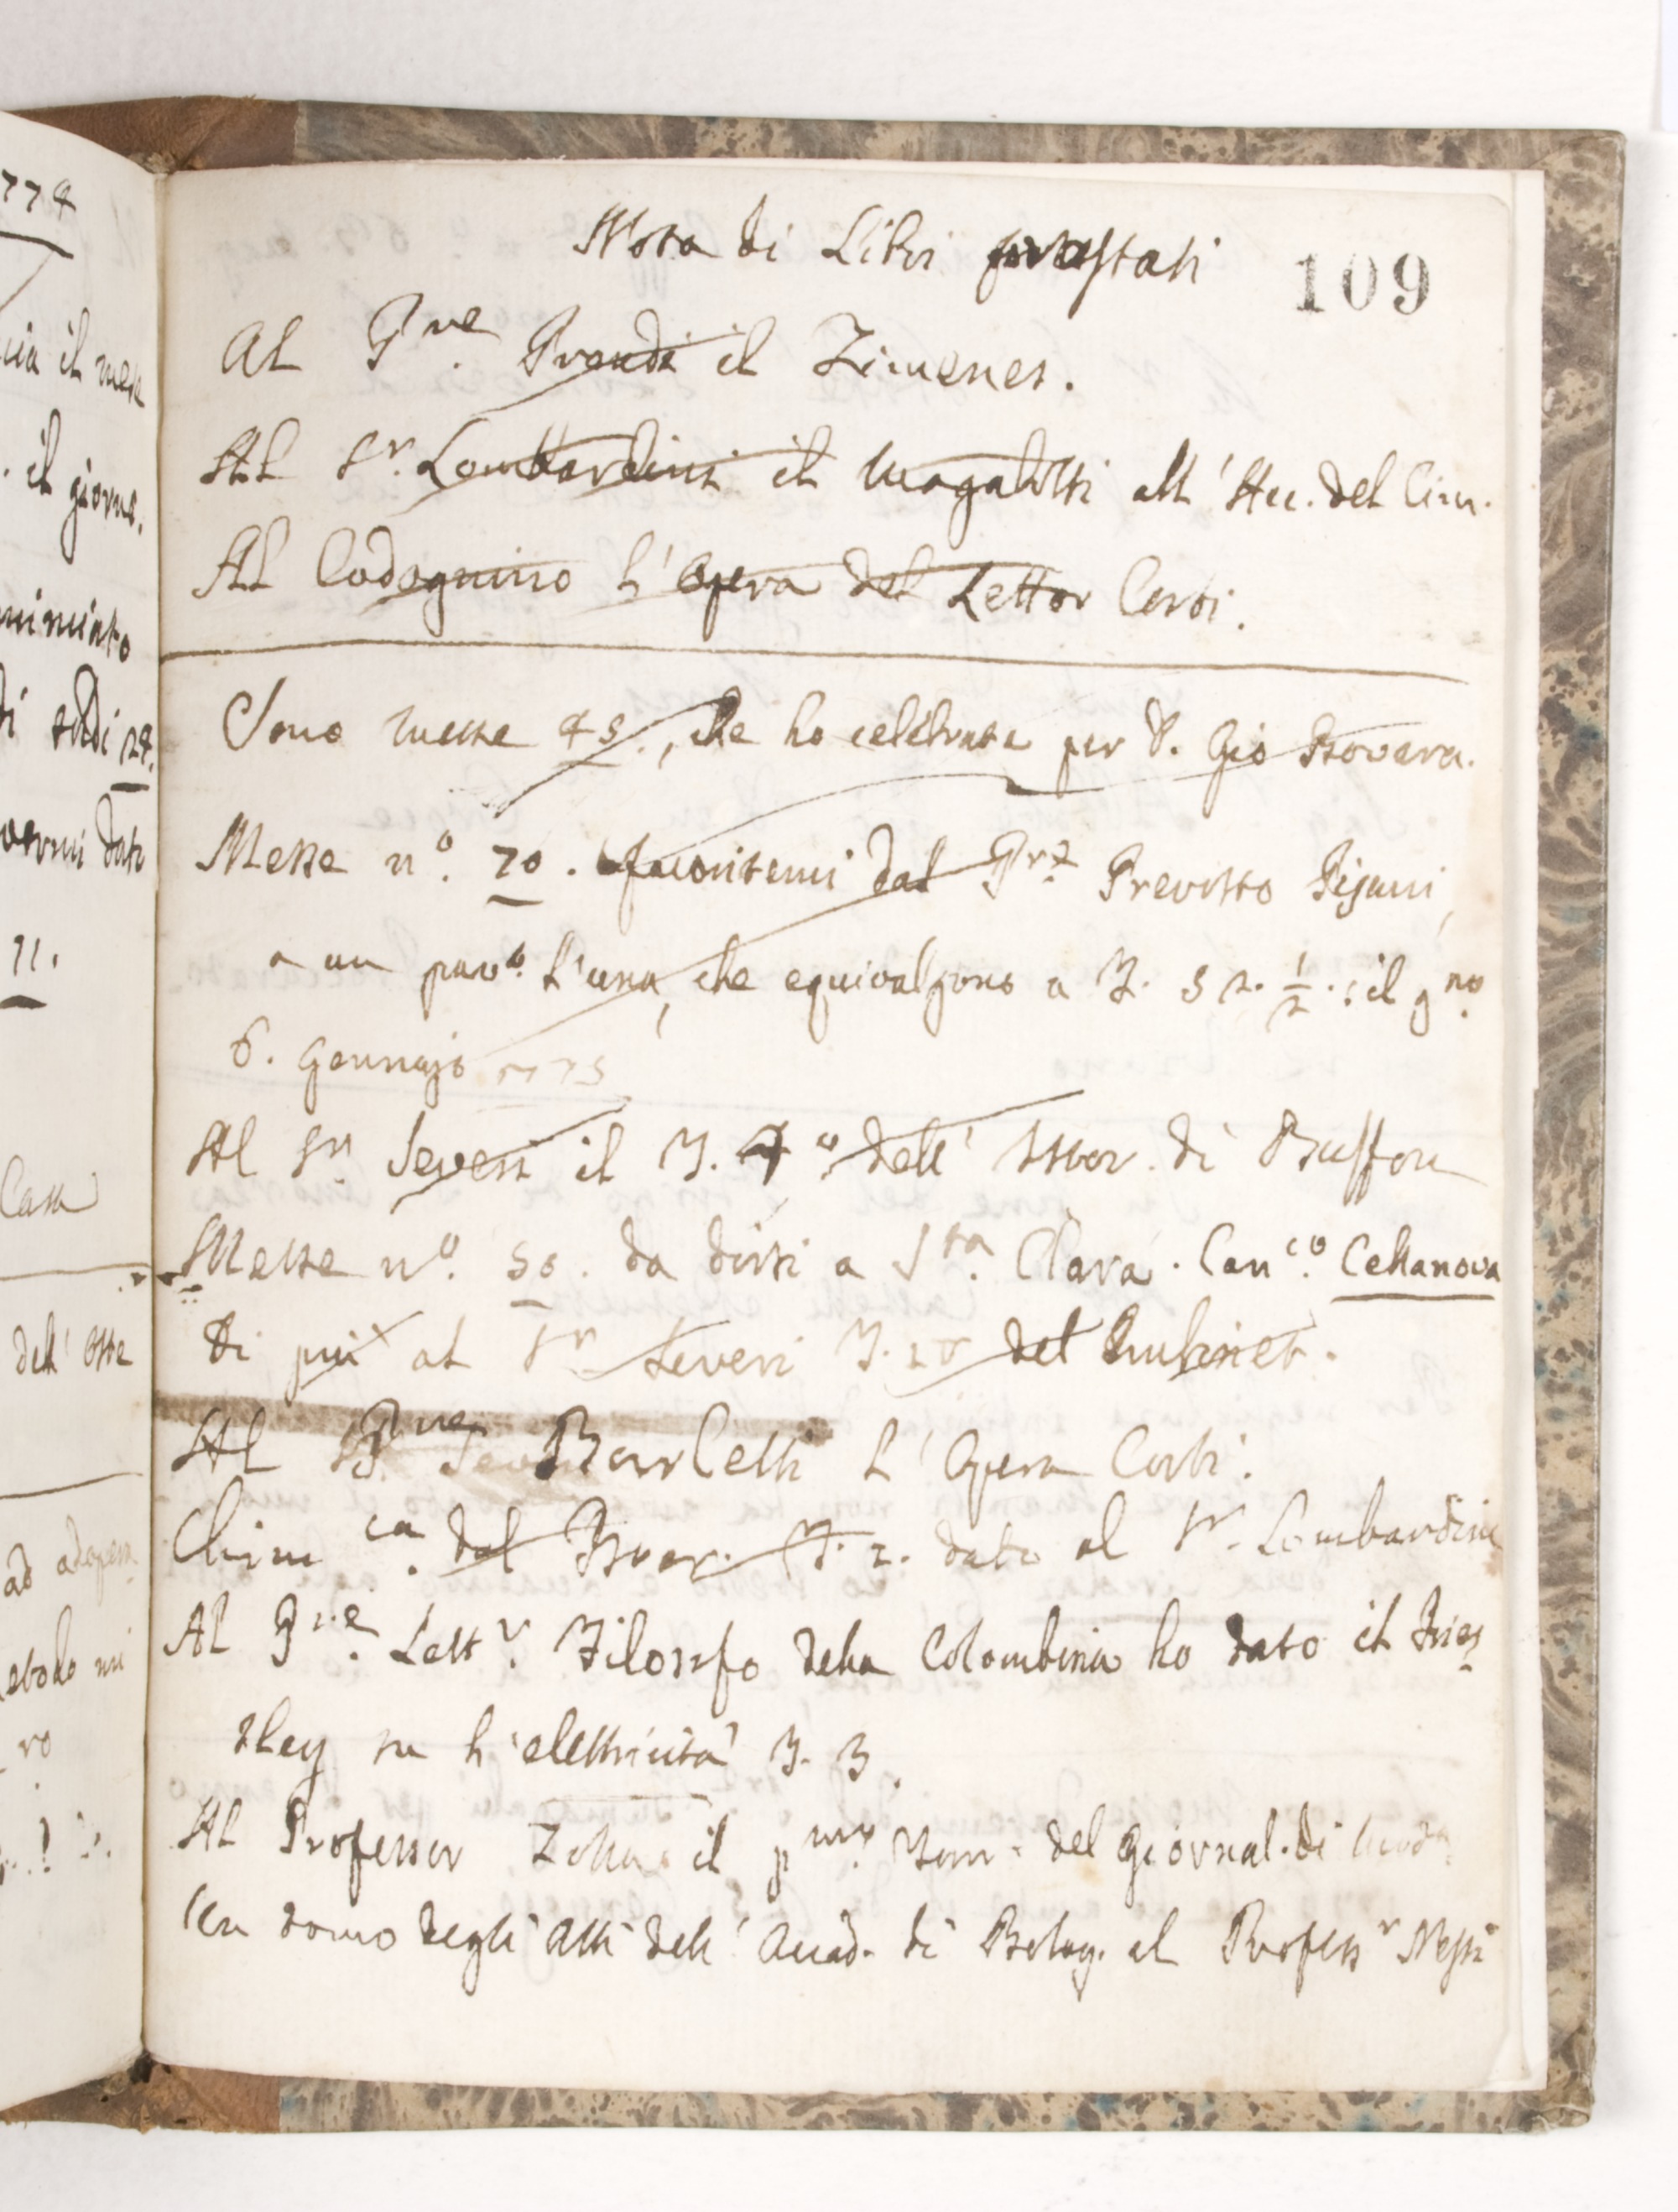 774
Nota di Libri prestati
109
Al P.re Prandi il Zimenes.
Al Sr. Lombardini il Magalotti all'Acc. del Cim.
Al Codognino l'Opera del Lettor Corti.
Sono messe 45., che ho celebrate per D. Gio Bovara.
Messe n.o 70. favoritemi dal Prevosto Pisani,
a un pav.o l'una, che equivalgono a Z. 52. 1/2.: il g.no
6. Gennajo 1775
Al Sr. Severi il T. 4.o dell' Istor. di Buffon
Messe n.o 50. da dirsi a S.ta Clara. Can.co Cellanova
Di più al Sr Severi T. del
Al P.re Barletti l'Opera Corti.
Chim.ca del Boer. T. 2. dato al Sr. Lombardini
Al P.re Lett.r Filosofo della Colombina ho dato il Pries
tley su l'elettricità T. 3.
Al Professor Zola il p.mo Tom. del Giornal. di Mod.
Un tomo degli Atti dell' Accad. di Bolog. al Profess.r Nessi
il mese
il giorno.
di 24.
dati
11.
Casa
dell'
ad
ro